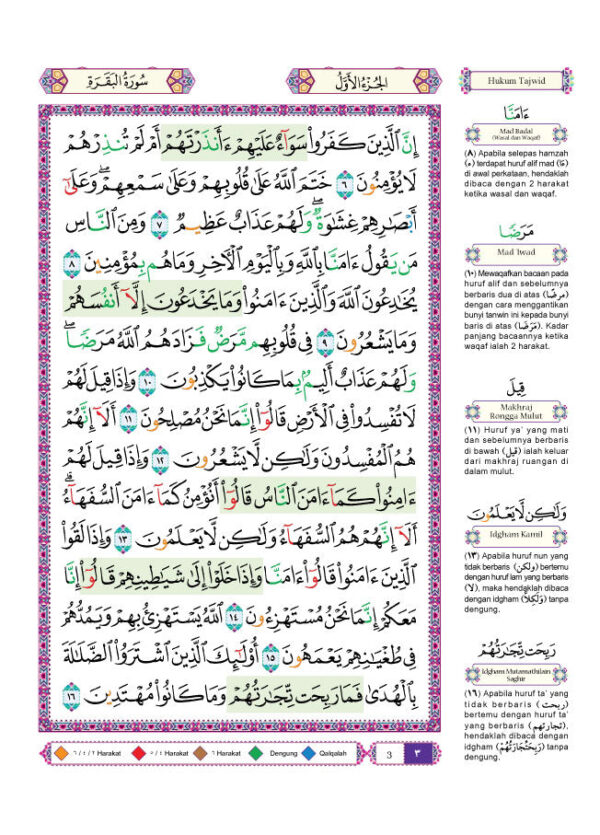 سُورَةُ الْبَقَرَةِ
الجُزْءُ الأَوَّلُ
إِنَّ الَّذِينَ كَفَرُوا سَوَآءٌ عَلَيْهِمْ ءَأَنذَرْتَهُمْ أَمْ لَمْ تُنذِرْهُمْ
لَا يُؤْمِنُونَ ٦ خَتَمَ اللَّهُ عَلَىٰ قُلُوبِهِمْ وَعَلَىٰ سَمْعِهِمْ ۖ وَعَلَىٰٓ
أَبْصَٰرِهِمْ غِشَٰوَةٌ ۖ وَلَهُمْ عَذَابٌ عَظِيمٌ ٧ وَمِنَ النَّاسِ
مَن يَقُولُ ءَامَنَّا بِاللَّهِ وَبِالْيَوْمِ الْأَخِرِ وَمَا هُم بِمُؤْمِنِينَ ٨
يُخَٰدِعُونَ اللَّهَ وَالَّذِينَ ءَامَنُوا وَمَا يَخْدَعُونَ إِلَّآ أَنفُسَهُمْ
وَمَا يَشْعُرُونَ ٩ فِى قُلُوبِهِم مَّرَضٌ فَزَادَهُمُ اللَّهُ مَرَضًا ۖ
وَلَهُمْ عَذَابٌ أَلِيمٌۢ بِمَا كَانُوا يَكْذِبُونَ ١٠ وَإِذَا قِيلَ لَهُمْ
لَا تُفْسِدُوا فِى الْأَرْضِ قَالُوٓا إِنَّمَا نَحْنُ مُصْلِحُونَ ١١ أَلَآ إِنَّهُمْ
هُمُ الْمُفْسِدُونَ وَلَٰكِن لَّا يَشْعُرُونَ ١٢ وَإِذَا قِيلَ لَهُمْ
ءَامِنُوا كَمَآ ءَامَنَ النَّاسُ قَالُوٓا أَنُؤْمِنُ كَمَآ ءَامَنَ السُّفَهَآءُ ۗ
أَلَآ إِنَّهُمْ هُمُ السُّفَهَآءُ وَلَٰكِن لَّا يَعْلَمُونَ ١٣ وَإِذَا لَقُوا
الَّذِينَ ءَامَنُوا قَالُوٓا ءَامَنَّا وَإِذَا خَلَوْا إِلَىٰ شَيَٰطِينِهِمْ قَالُوٓا إِنَّا
مَعَكُمْ إِنَّمَا نَحْنُ مُسْتَهْزِءُونَ ١٤ اللَّهُ يَسْتَهْزِئُ بِهِمْ وَيَمُدُّهُمْ
فِى طُغْيَٰنِهِمْ يَعْمَهُونَ ١٥ أُو۟لَٰٓئِكَ الَّذِينَ اشْتَرَوُا الضَّلَٰلَةَ
بِالْهُدَىٰ فَمَا رَبِحَت تِّجَٰرَتُهُمْ وَمَا كَانُوا مُهْتَدِينَ ١٦
٦ / ٤ / ٢ Harakat
٥ / ٤ Harakat
٦ Harakat
Dengung
Qalqalah
3
٣
Hukum Tajwid
ءَامَنَّا
Mad Badal
(Wasal dan Waqaf)
(٨) Apabila selepas hamzah
(ء) terdapat huruf alif mad (ـَا)
di awal perkataan, hendaklah
dibaca dengan 2 harakat
ketika wasal dan waqaf.
مَرَضًا
Mad Iwad
(١٠) Mewaqafkan bacaan pada
huruf alif dan sebelumnya
berbaris dua di atas (مرضًا)
dengan cara menggantikan
bunyi tanwin ini kepada bunyi
baris di atas (مَرَضَا). Kadar
panjang bacaannya ketika
waqaf ialah 2 harakat.
قِيلَ
Makhraj
Rongga Mulut
(١١) Huruf ya' yang mati
dan sebelumnya berbaris
di bawah (قيل) ialah keluar
dari makhraj ruangan di
dalam mulut.
وَلَٰكِن لَّا يَعْلَمُونَ
Idgham Kamil
(١٣) Apabila huruf nun yang
tidak berbaris (ولكن) bertemu
dengan huruf lam yang berbaris
(لَا), maka hendaklah dibaca
dengan idgham (وَلَكِلَّا) tanpa
dengung.
رَبِحَت تِّجَٰرَتُهُمْ
Idgham Mutamathilain
Saghir
(١٦) Apabila huruf ta' yang
tidak berbaris (ربحت)
bertemu dengan huruf ta'
yang berbaris (تجارتهم),
hendaklah dibaca dengan
idgham (رَبِحَتِّجَارَتُهُمْ) tanpa
dengung.